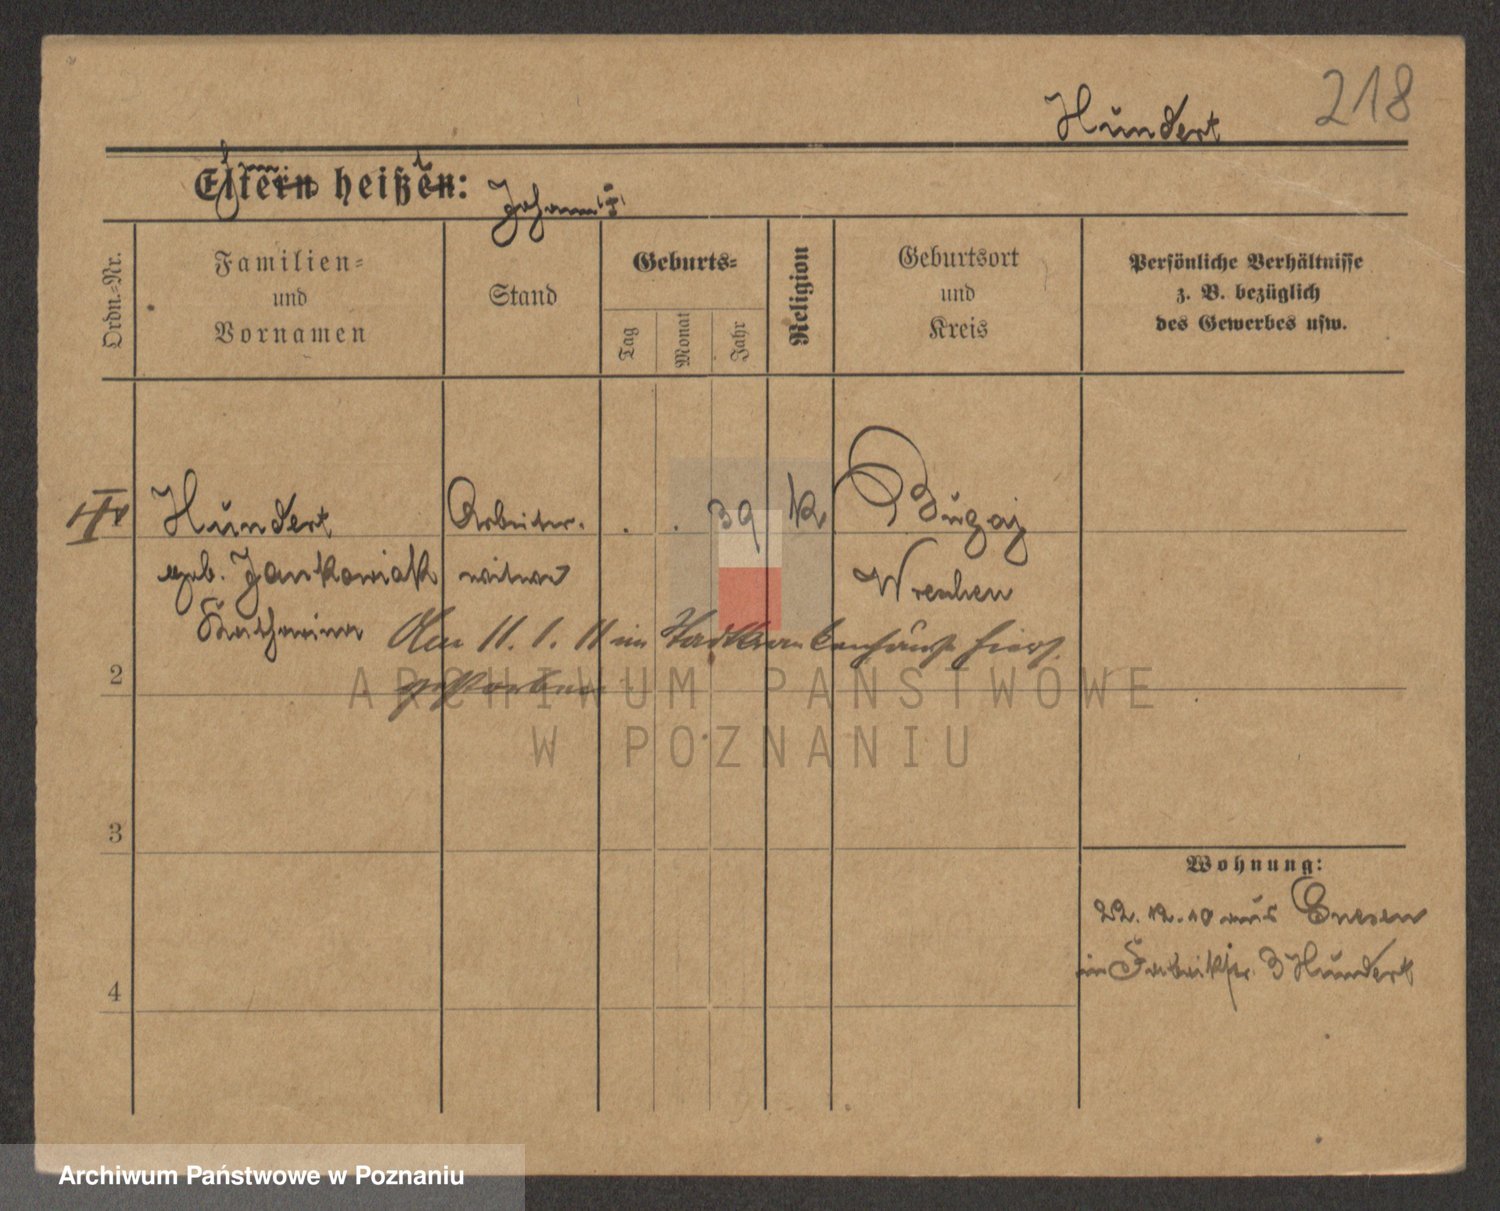 218
Hundert
Eltern heißen:
Johann
Ordn.-Nr.
Familien-
und
Vornamen
Stand
Geburts-
Tag
Monat
Jahr
Religion
Geburtsort
und
Kreis
Persönliche Verhältnisse
z. B. bezüglich
des Gewerbes usw.
Hundert
geb. Jankowiak
Katharina
Arbeiter-
witwe
. . 39
k
Bugaj
Wreschen
Am 11. 1. 11 im Stadtkrankenhause hiers.
gestorben
2
3
4
Wohnung:
22. 12. 10 aus Gnesen
in Fabrikstr. 3 Hundert
ARCHIWUM PAŃSTWOWE
W POZNANIU
Archiwum Państwowe w Poznaniu